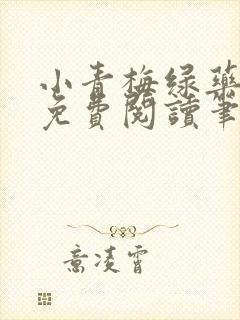 小青梅绿药
免費閱讀筆
意凌霄